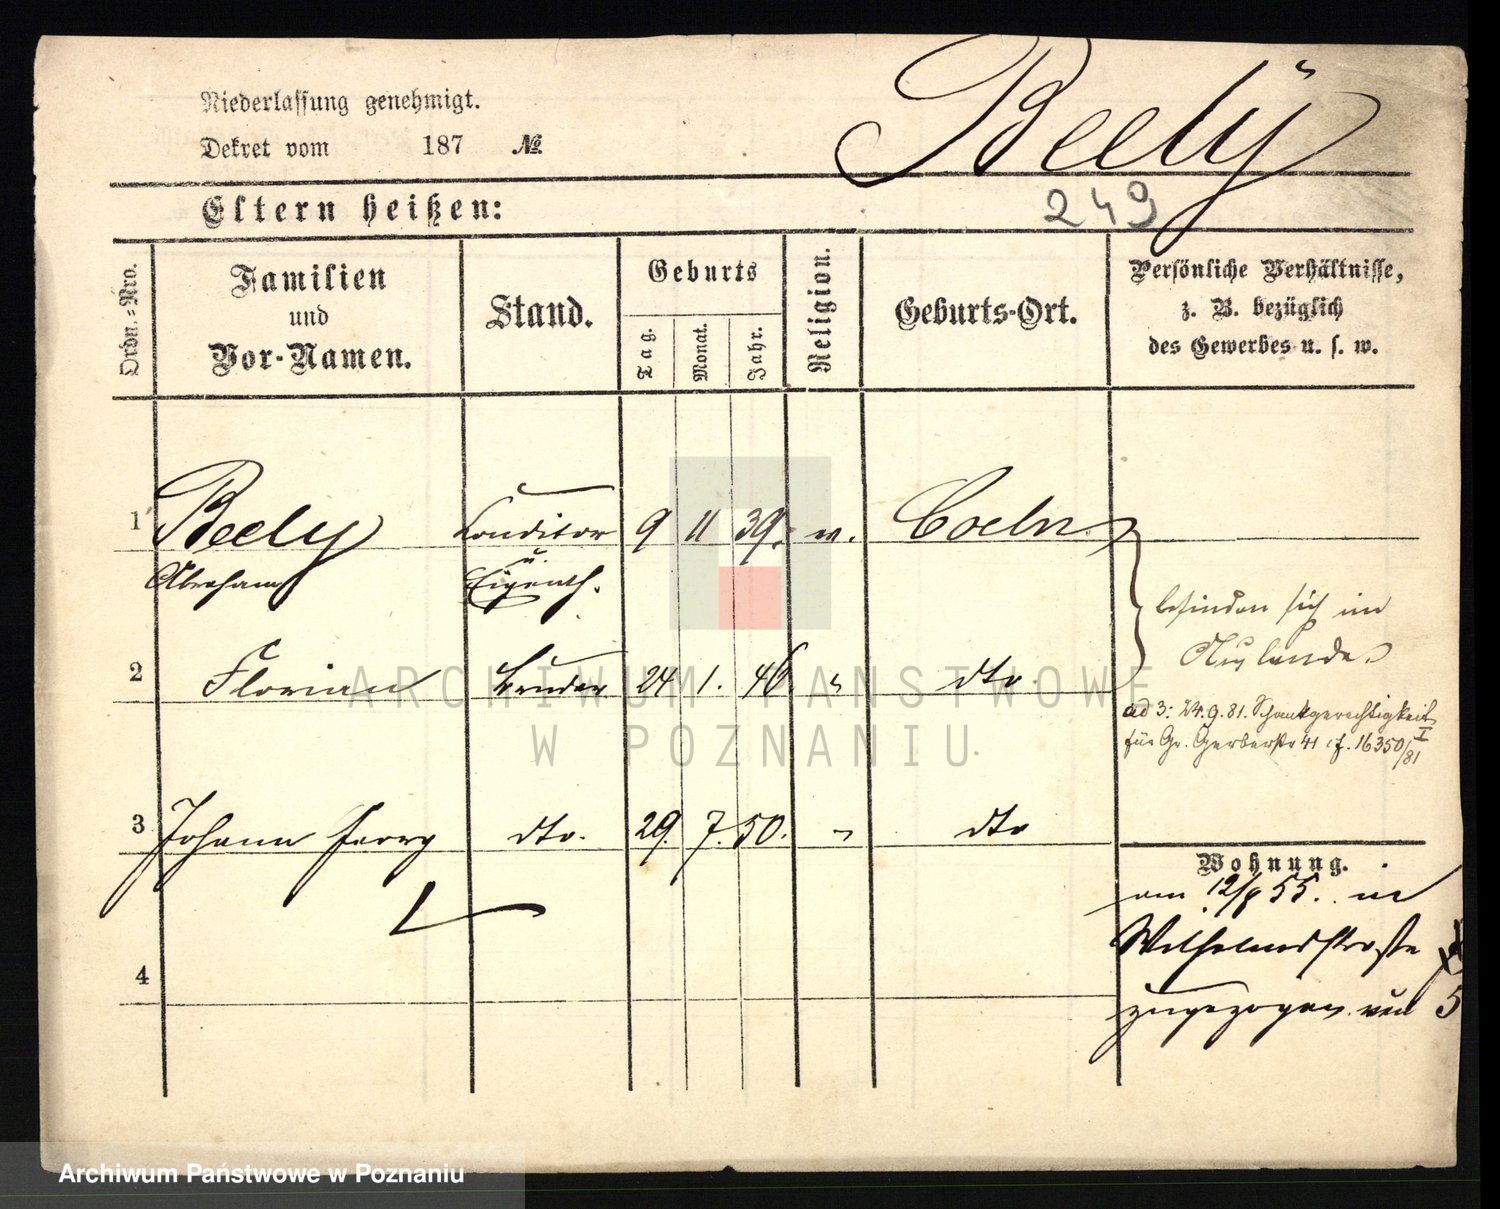 Niederlassung genehmigt.
Dekret vom 187 №
Beely
249
Eltern heißen:
Ordn.=Nro.
Familien
und
Vor-Namen.
Stand.
Geburts
Tag.
Monat.
Jahr.
Religion.
Geburts-Ort.
Persönliche Verhältnisse,
z. B. bezüglich
des Gewerbes u. s. w.
1 Beely Conditor 9 11 39. Coeln
Abraham u.
Eigenth.
befinden sich im
Auslande.
2 Florian Bruder 24 1. 46. " dto
ad 3: 24.9.81. Schankgerechtigkeit
für Gr. Gerberstr 41 cf. 16350/81 I
3 Johann Georg dto. 29. 7. 50. " dto
Wohnung.
am 12/8 55. in
Wilhelmstraße
zugezogen 5
4
ARCHIWUM PAŃSTWOWE
W POZNANIU
Archiwum Państwowe w Poznaniu